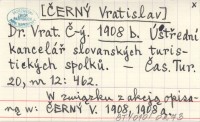 [ČERNÝ Vratislav]
Dr. Vrat. Č-ý. 1908 b. Ústřední
kancelář slovanských turis-
tických spolků. – Čas. Tur.
20, nr 12: 462.
W związku z akcją opisa-
ną w: ČERNÝ V. 1908, 1908 a